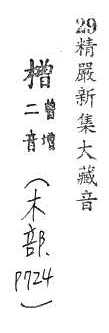 29精嚴新集大藏音
橧曾增二音(木部.P724)